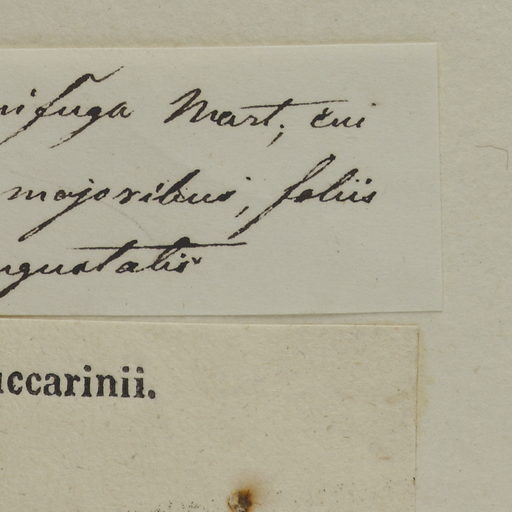 nifuga Mart; cui
majoribus, foliis
ngustatis
uccarinii.